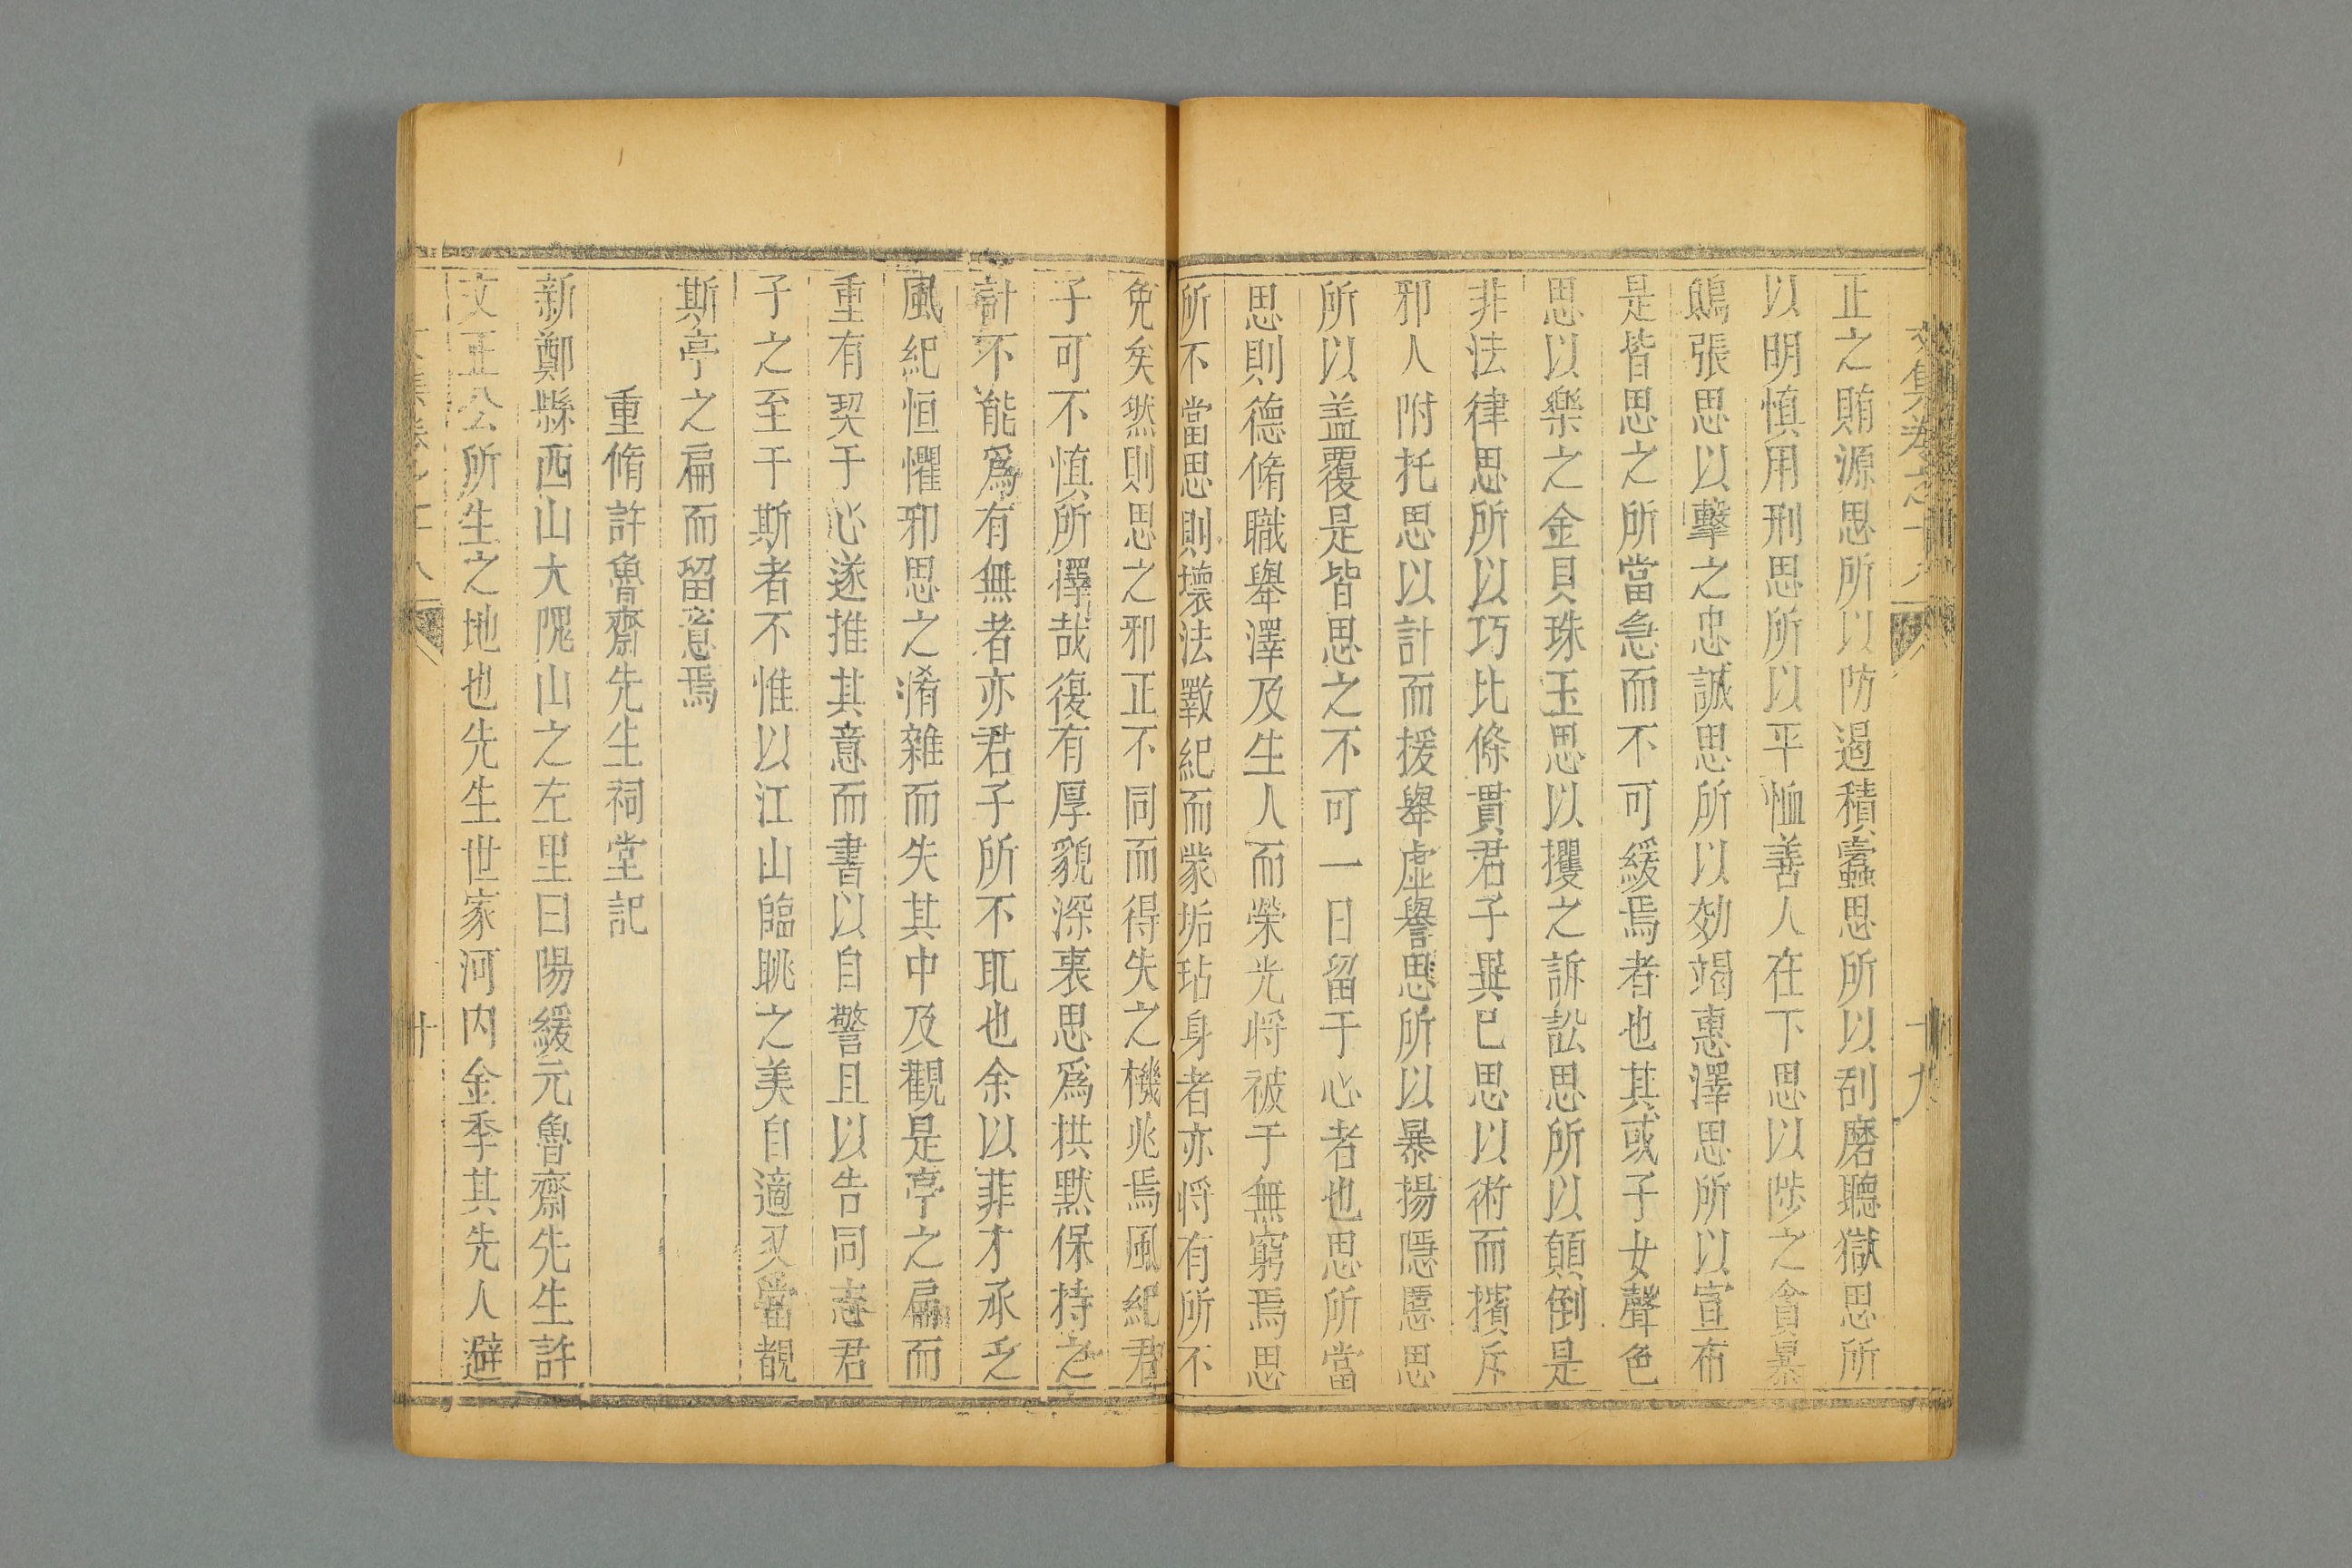 文集卷之十八
十九
正之賄源思所以防遏積蠹思所以刮磨聽獄思所
以明慎用刑思所以平恤善人在下思以陟之貪暴
鴟張思以擊之忠誠思所以効竭惠澤思所以宣布
是皆思之所當急而不可緩焉者也其或子女聲色
思以樂之金貝珠玉思以攫之訴訟思所以顛倒是
非法律思所以巧比條貫君子異己思以術而擯斥
邪人附托思以計而援舉虛譽思所以暴揚隱慝思
所以盖覆是皆思之不可一日留于心者也思所當
思則德脩職舉澤及生人而榮光將被于無窮焉思
所不當思則壞法斁紀而蒙垢玷身者亦將有所不
免矣然則思之邪正不同而得失之機兆焉風紀君
子可不慎所擇哉復有厚貌深裏思爲拱默保持之
計不能爲有無者亦君子所不耴也余以菲才承乏
風紀恒懼邪思之淆雜而失其中及觀是亭之扁而
重有契于心遂推其意而書以自警且以告同志君
子之至于斯者不惟以江山臨眺之美自適又當覩
斯亭之扁而留意焉
重脩許魯齋先生祠堂記
新鄭縣西山大隗山之左里曰陽緩元魯齋先生許
文正公所生之地也先生世家河内金季其先人避
文集卷之十八
廿